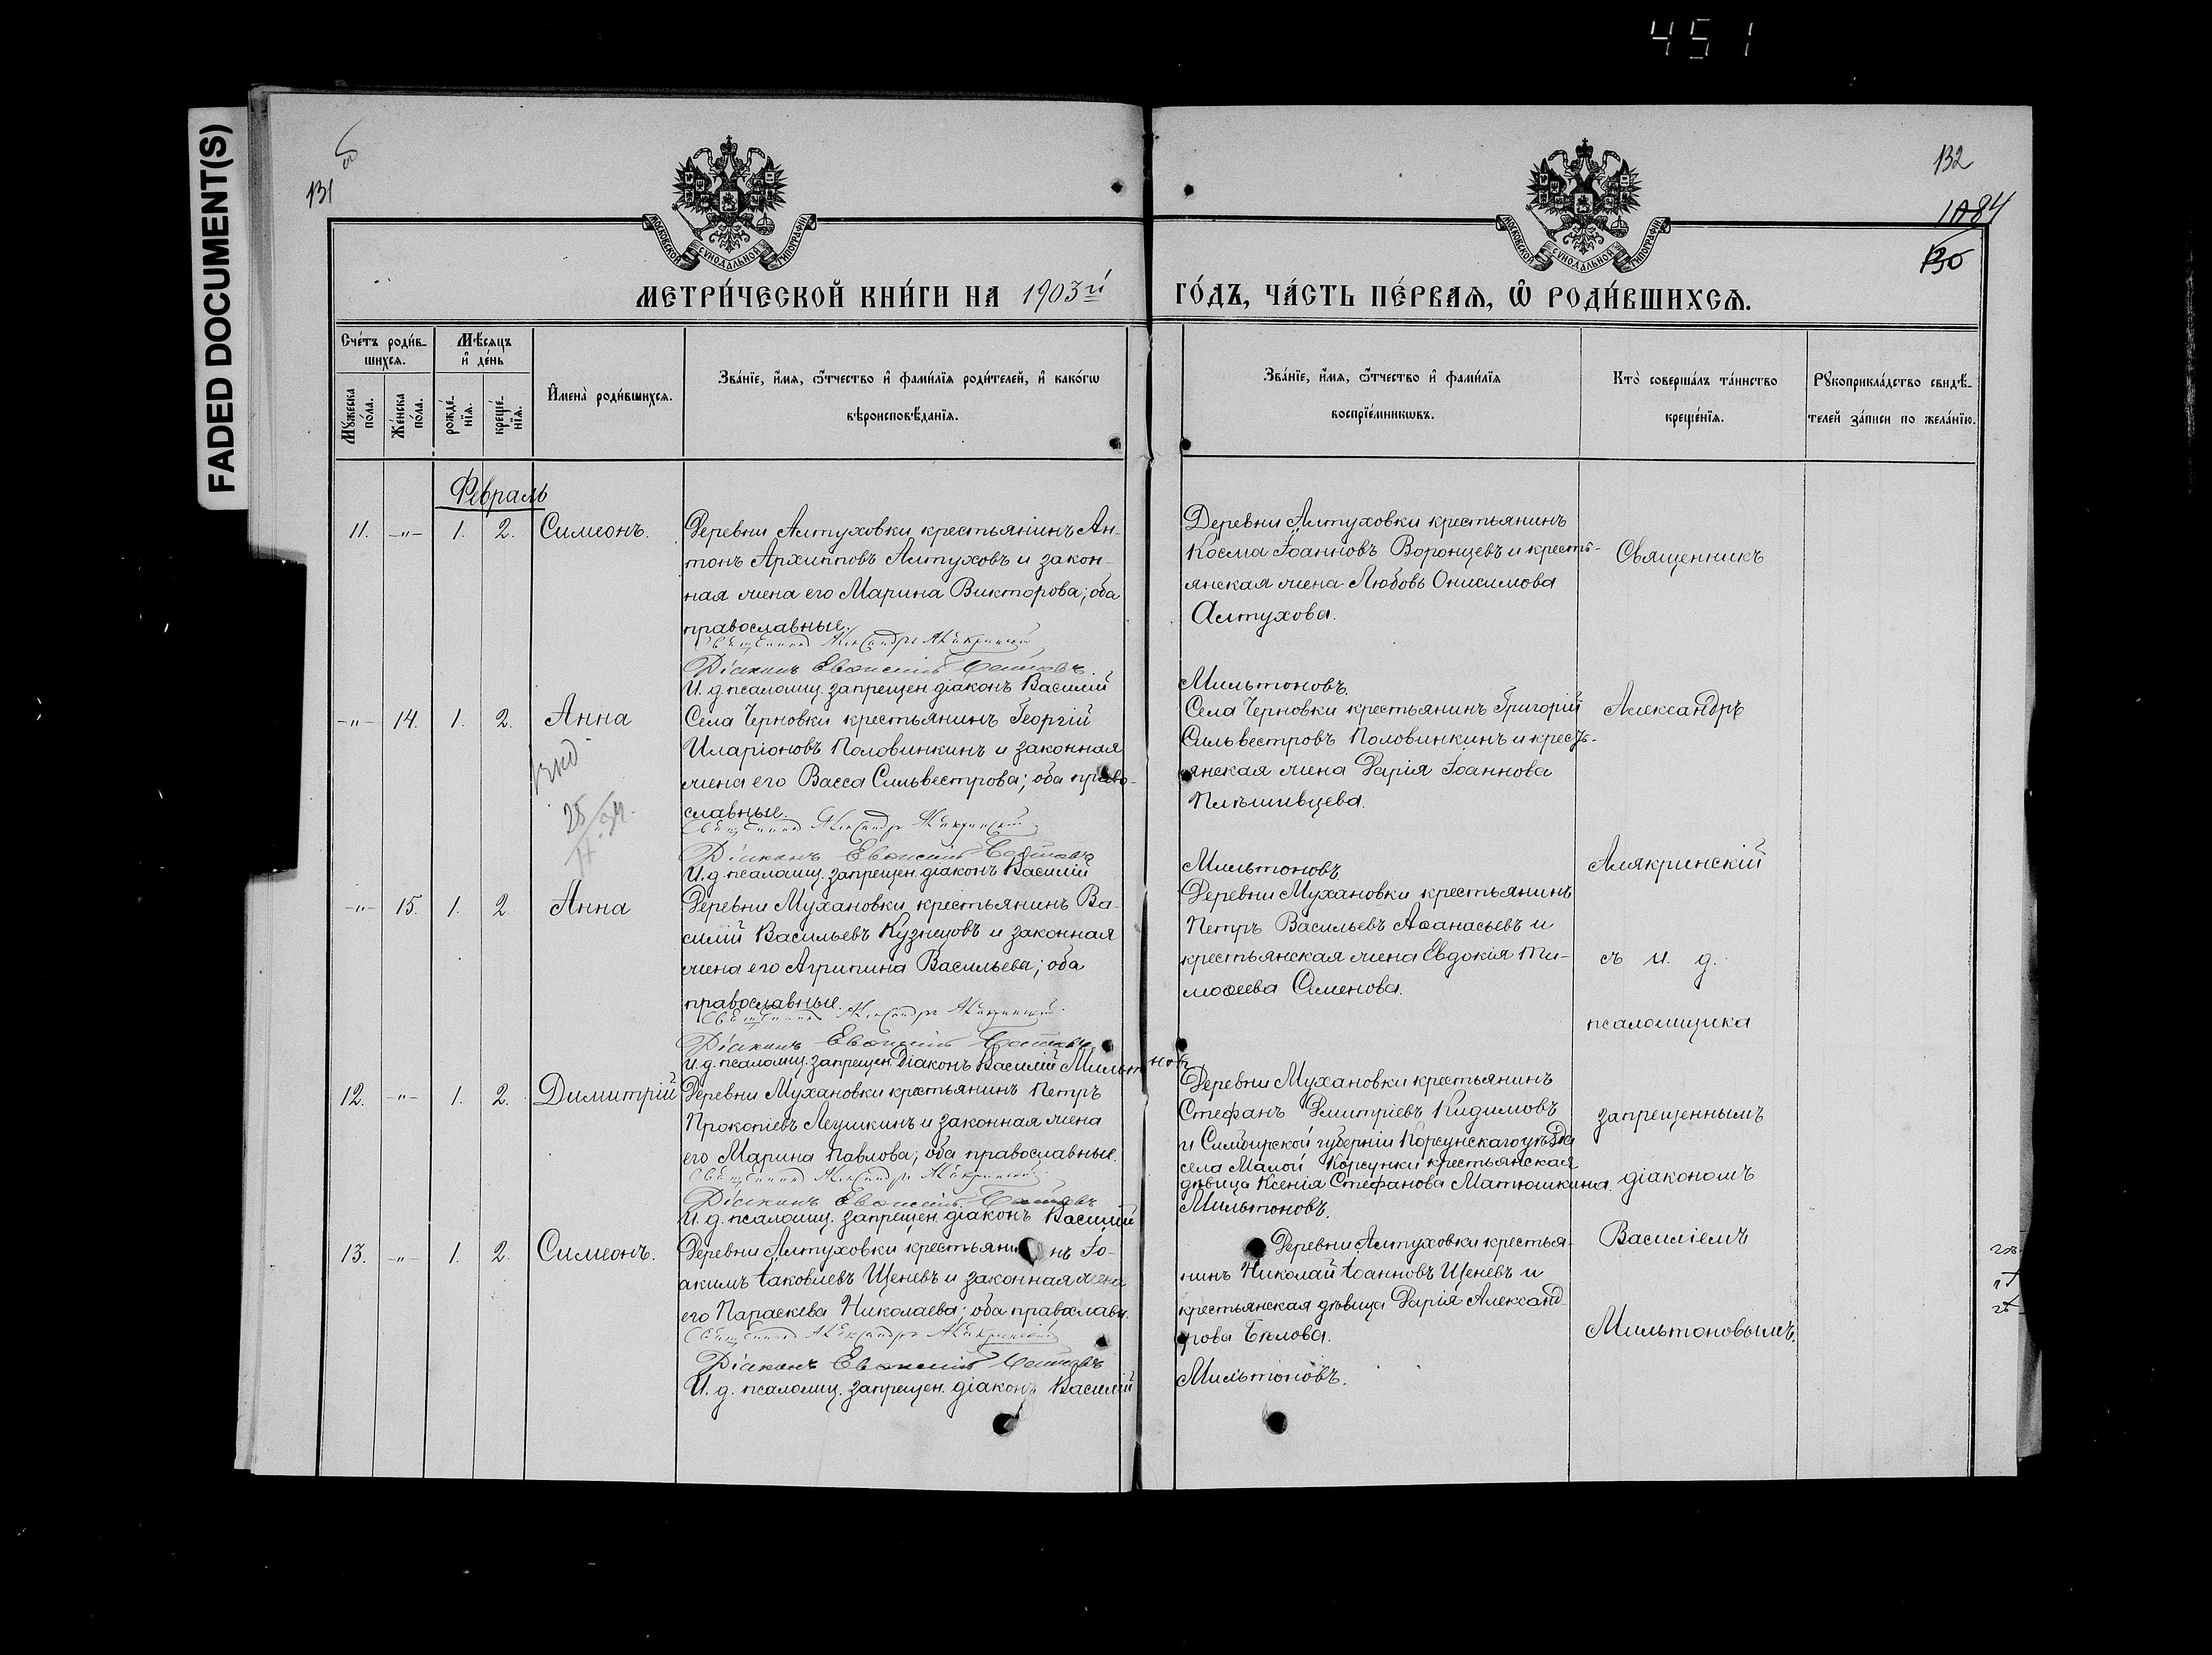 451
FADED DOCUMENT(S)
131
132
1084
130
МОСКОВСКОЙ СѴНОДАЛЬНОЙ ТИПОГРАФІИ
МОСКОВСКОЙ СѴНОДАЛЬНОЙ ТИПОГРАФІИ
МЕТРИ́ЧЕСКОЙ КНИ́ГИ НА 1903й ГО́ДЪ, ЧА́СТЬ ПЕ́РВАѦ, Ѡ РОДИ́ВШИХСѦ.
Сче́тъ роди́в-
шихсѧ.
Мꙋ́жеска
по́ла.
Же́нска
по́ла.
Мѣ́сѧцъ
и҆ де́нь
рожде́-
нїѧ.
креще́-
нїѧ.
И҆мена̀ роди́вшихсѧ.
Зва́нїе, и҆́мѧ, ѻ҆́тчество и҆ фами́лїѧ роди́телей, и҆ како́гѡ
вѣроисповѣ́данїѧ.
Зва́нїе, и҆́мѧ, ѻ҆́тчество и҆ фами́лїѧ
воспрїе́мникѡвъ.
Кто̀ соверша́лъ та́инство
креще́нїѧ.
Рꙋкоприкла́дство свидѣ́-
телей за́писи по жела́нїю.
Февраль
11. -"- 1. 2. Симеонъ.
Деревни Алтуховки крестьянинъ Ан-
тонъ Архипповъ Алтуховъ и закон-
ная жена его Марина Викторова; оба
православные.
Священникъ Александръ Алякринскій
Діаконъ Евѳимій
И. д. псаломщ. запрещен. діаконъ Василій Мильтоновъ.
Деревни Алтуховки крестьянинъ
Косма Іоанновъ Воронцевъ и кресть-
янская жена Любовь Онисимова
Алтухова.
-"- 14. 1. 2. Анна
Села Черновки крестьянинъ Георгій
Иларіоновъ Половинкинъ и законная
жена его Васса Сильвестрова; оба право-
славные.
Священникъ Александръ Алякринскій
Діаконъ Евѳимій
И. д. псаломщ. запрещен. діаконъ Василій Мильтоновъ.
Села Черновки крестьянинъ Григорій
Сильвестровъ Половинкинъ и кресть-
янская жена Дарія Іоаннова
Плѣшивцева.
-"- 15. 1. 2. Анна
Деревни Мухановки крестьянинъ Ва-
силій Васильевъ Кузнецовъ и законная
жена его Агрипина Васильева; оба
православные.
Священникъ Александръ Алякринскій
Діаконъ Евѳимій
И. д. псаломщ. запрещен. Діаконъ Василій Мильтоновъ
Деревни Мухановки крестьянинъ
Петръ Васильевъ Аѳанасьевъ и
крестьянская жена Евдокія Ти-
моѳеева Аменова.
12. -"- 1. 2. Димитрій
Деревни Мухановки крестьянинъ Петръ
Прокопіевъ Леушкинъ и законная жена
его Марина Павлова; оба православные.
Священникъ Александръ Алякринскій
Діаконъ Евѳимій
И. д. псаломщ. запрещен. діаконъ Василій Мильтоновъ.
Деревни Мухановки крестьянинъ
Стефанъ Димитріевъ Кидимовъ
и Симбирской губерніи Корсунскаго уѣзда
села Малой Корсунки крестьянская
дѣвица Ксенія Стефанова Матюшкина.
13. -"- 1. 2. Симеонъ.
Деревни Алтуховки крестьянинъ Іо-
акимъ Іаковлевъ Щеневъ и законная жена
его Параскева Николаева; оба православн.
Священникъ Александръ Алякринскій
Діаконъ Евѳимій
И. д. псаломщ. запрещен. діаконъ Василій Мильтоновъ.
Деревни Алтуховки крестья-
нинъ Николай Іоанновъ Щеневъ и
крестьянская дѣвица Дарія Александ-
рова Бѣлова.
Священникъ
Александръ
Алякринскій
съ и. д.
псаломщика
запрещеннымъ
діакономъ
Василіемъ
Мильтоновымъ.